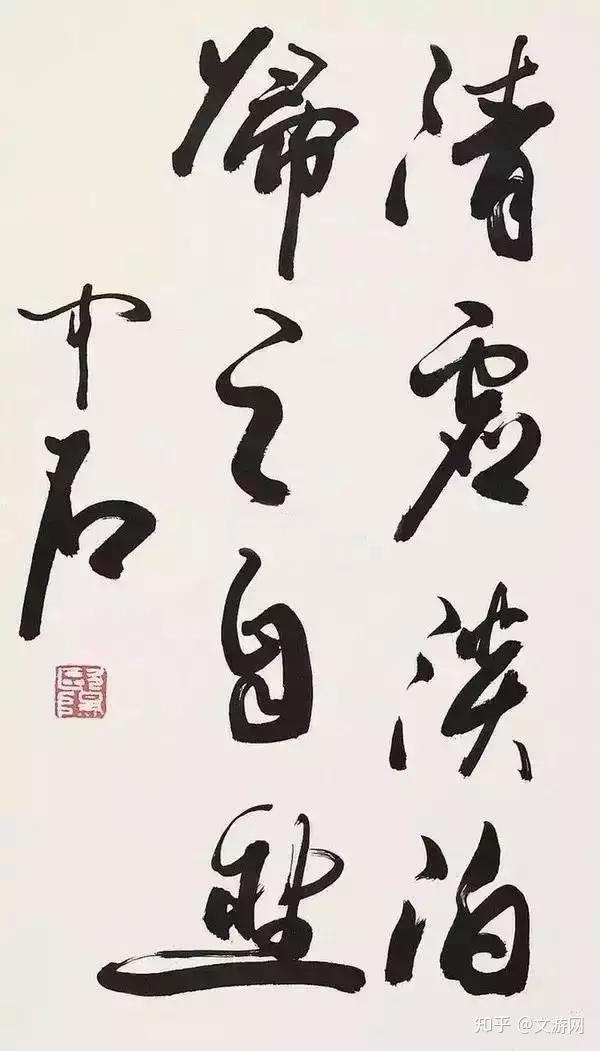 清虚淡泊
歸之自然
中石
知乎 @文游网